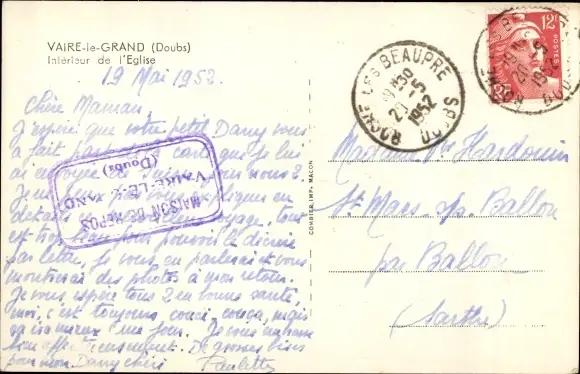 VAIRE-le-GRAND (Doubs)
Intérieur de l'Eglise
19 Mai 1952.
Chère Maman,
J'espère que votre petit Dany vous
a fait part de la carte que je lui
ai envoyée. vous ?
Je ne
détails voyage, tout
est trop pour pouvoir le décrire
par lettre, je vous en parlerai et vous
montrerai des photos à mon retour.
Je vous espère tous 2 en bonne santé,
moi, c'est toujours couci, couça, mais
ça ira mieux un jour. Je vous embrasse
bien affectueusement. De grosses bises
pour mon Dany chéri Paulette
MAISON DE REPOS
VAIRE-LE-GRAND
(Doubs)
COMBIER IMP. MACON
ROCHE LES BEAUPRE
1952
12F
POSTES
RF
Madame Hardouin
St Mars Ballon
par Ballon
(Sarthe)